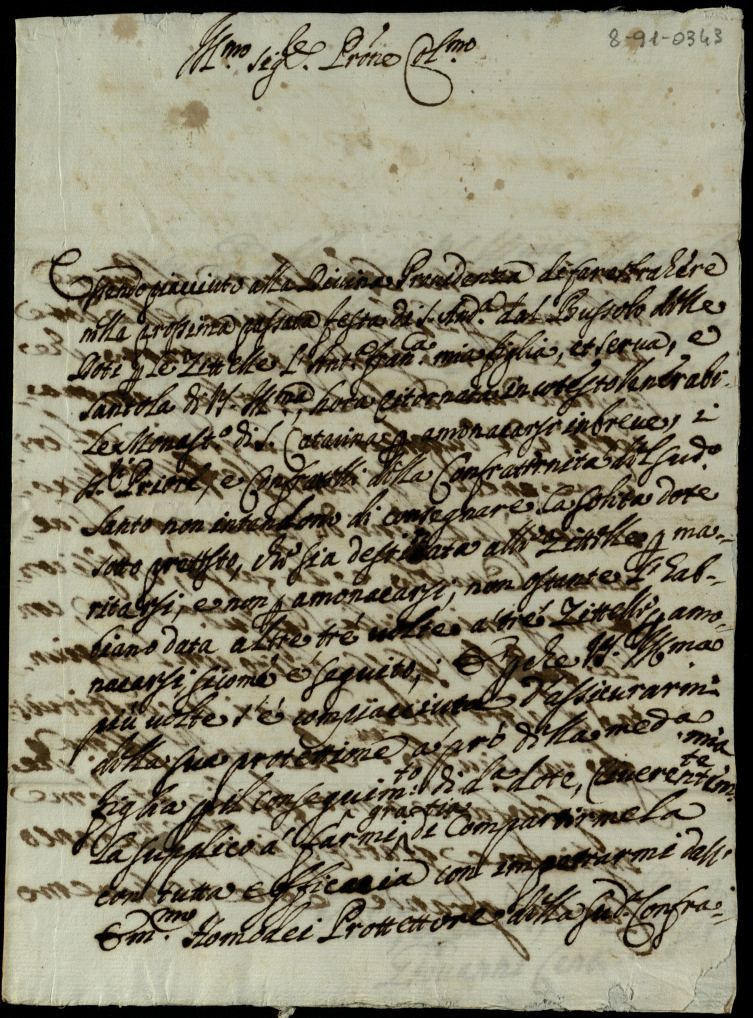 8-91-0343
Ill.mo Sig.re Prone Col.mo
Essendo piacciuto alla Divina Providenza di far estrahere
nella prossima passata festa di S. And.a dal Bussolo delle
Doti p le Zittelle Fran.ca mia figlia, et serva, e
Santola di V.S. Ill.ma, hora ritornata in cotesto Venerabi-
le Monast.o di S. Catarina p amonacarsi in breve, i
SS.ri Priori, e Confratelli della Confraternità del Sud.o
Santo non intendono di consegnare la solita dote
sotto pretesto, che sia destinata alle Zittelle p ma-
ritarsi, e non p amonacarsi, non ostante l' hab-
biano data altre tré volte a tré Zittelle p amo-
nacarsi sicome é seguito; E perche V.S. Ill.ma
piú volte s'é compiacciuta d'assicurarmi
della sua protetione a pró della med.a mia
figlia p il conseguim.to di d.a dote, Reverentem.te
La supplico á farmi gratia di Compartirmela
con tutta efficacia con impetrarmi dall'
Em.mo Homodei Prottettore della Sud.a Confra-